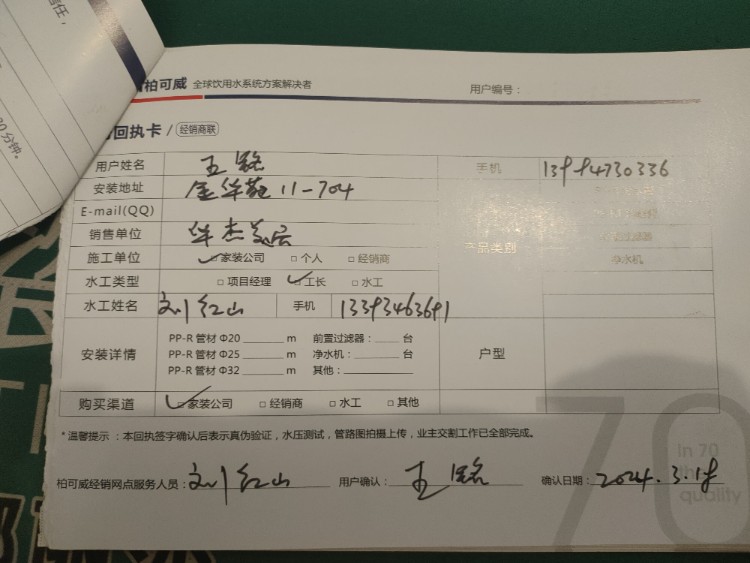 任,
30分钟。
柏可威 全球饮用水系统方案解决者
用户编号：
回执卡 / 经销商联
用户姓名 王铭 手机
安装地址 金华苑 11-704
E-mail(QQ)
销售单位 华杰 产品类别
施工单位 家装公司 □ 个人 □ 经销商 净水机
水工类型 □ 项目经理 工长 □ 水工
水工姓名 刘红山 手机
PP-R 管材 Φ20 ______ m 前置过滤器：____ 台
安装详情 PP-R 管材 Φ25 ______ m 净水机：____ 台 户型
PP-R 管材 Φ32 ______ m 其他：______
购买渠道 家装公司 □ 经销商 □ 水工 □ 其他
* 温馨提示：本回执签字确认后表示真伪验证，水压测试，管路图拍摄上传，业主交割工作已全部完成。
70
In 70
the
quality
柏可威经销网点服务人员：刘红山 用户确认：王铭 确认日期：2024.3.18